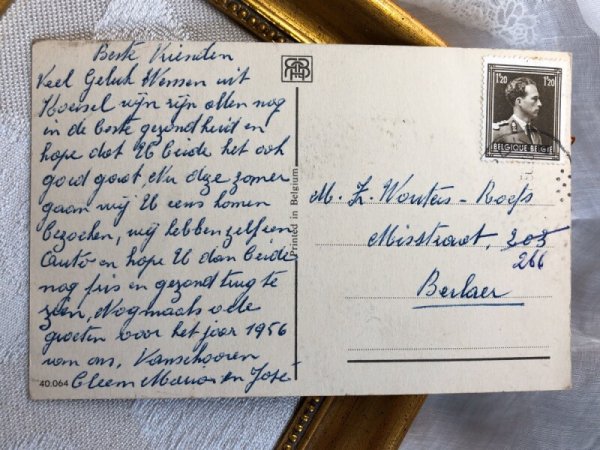 Beste Vrienden
Veel Geluk Wensen uit
wijn zijn allen nog
in de beste gezondheid en
hope dat U beide het ook
goed gaat, Nu deze zomer
gaan wij U eens komen
bezoeken, wij hebben zelf een
auto en hope U dan beide
nog fris en gezond trug te
zien, Nogmaals vele
groeten voor het jaar 1956
van ons, Vanschooren
Cleem Maria en José
40.064
Printed in Belgium
1F20 1F20
BELGIQUE BELGIE
M. Wouters - Roefs
Misstraat, 203
266
Berlaer